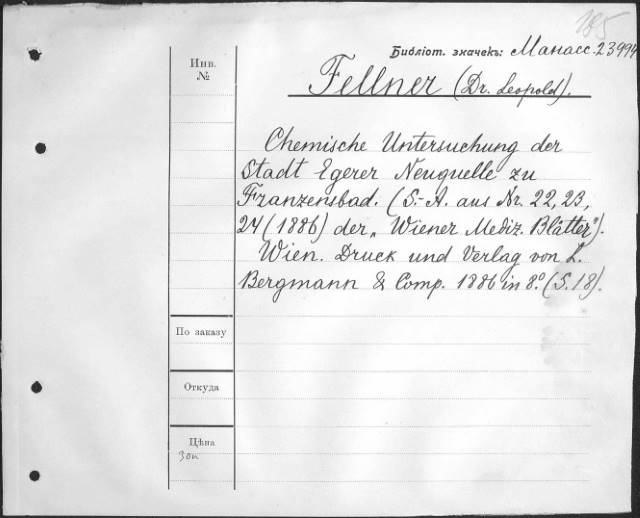 185
Библіот. значекъ: Манасс. 23994
Инв.
№
Fellner (Dr. Leopold).
Chemische Untersuchung der
Stadt Egerer Neuquelle zu
Franzensbad. (S.-A. aus Nr. 22, 23,
24 (1886) der „Wiener Mediz. Blätter“).
Wien. Druck und Verlag von L.
Bergmann & Comp. 1886 in 8.° (S. 18).
По заказу
Откуда
Цѣна
30к